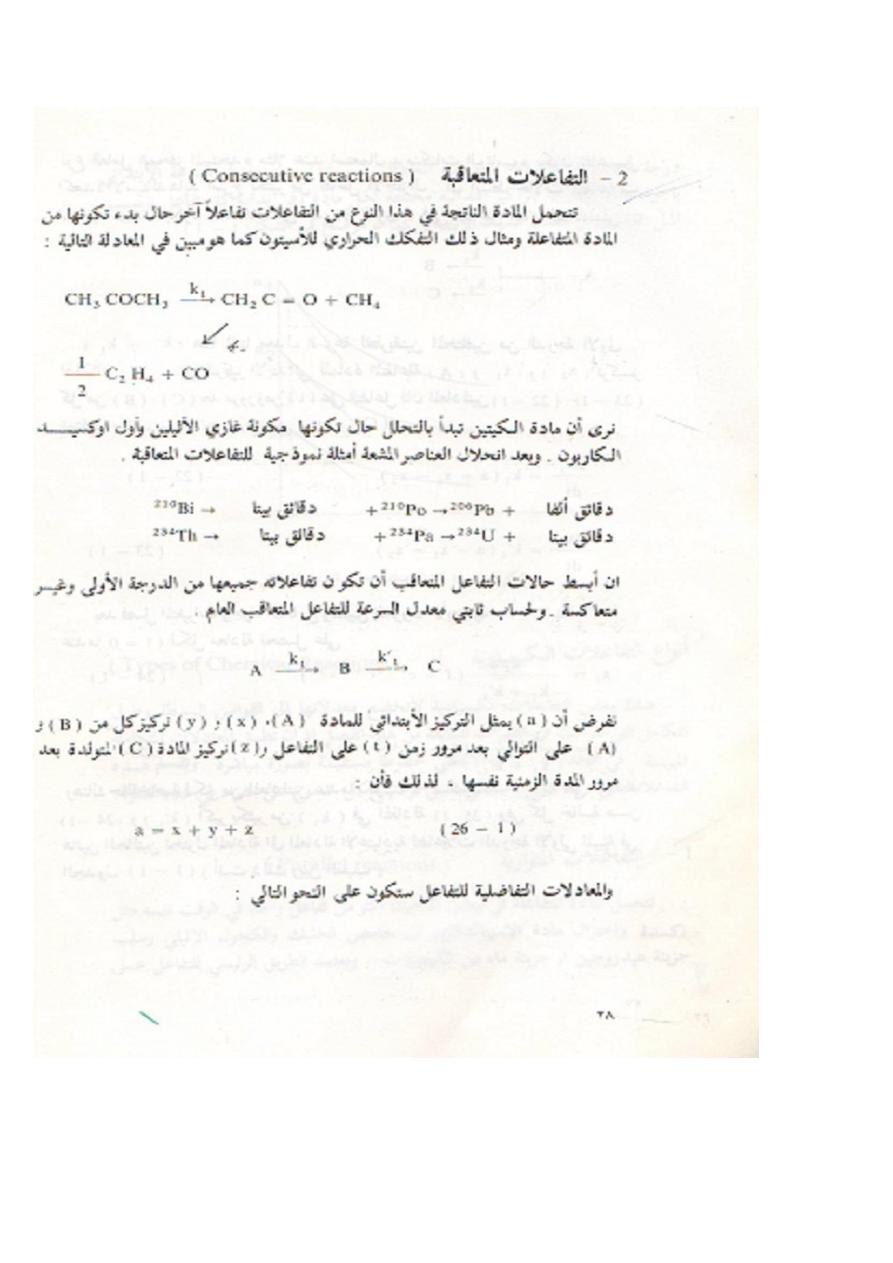 2 – التفاعلات المتعاقبة ( Consecutive reactions )
تتحمل المادة الناتجة في هذا النوع من التفاعلات تفاعلاً آخر حال بدء تكونها من
المادة المتفاعلة ومثال ذلك التفكك الحراري للأسيتون كما هو مبين في المعادلة التالية :
CH₃ COCH₃ —k₁→ CH₂ C = O + CH₄
1/2 C₂ H₄ + CO
نرى أن مادة الكيتين تبدأ بالتحلل حال تكونها مكونة غازي الأثيلين وأول اوكسيد
الكاربون . ويعد انحلال العناصر المشعة أمثلة نموذجية للتفاعلات المتعاقبة .
²¹⁰Bi → دقائق بيتا + ²¹⁰Po → ²⁰⁶Pb + دقائق ألفا
²³⁴Th → دقائق بيتا + ²³⁴Pa → ²³⁴U + دقائق بيتا
ان أبسط حالات التفاعل المتعاقب أن تكون تفاعلاته جميعها من الدرجة الأولى وغير
متعاكسة . ولحساب ثابتي معدل السرعة للتفاعل المتعاقب العام .
A —k₁→ B —k′₁→ C
نفرض أن (a) يمثل التركيز الأبتدائي للمادة (A)، (x) و (y) تركيز كل من (B) و
(A) على التوالي بعد مرور زمن (t) على التفاعل و(z) تركيز المادة (C) المتولدة بعد
مرور المدة الزمنية نفسها . لذلك فأن :
a = x + y + z ( 26 – 1 )
والمعادلات التفاضلية للتفاعل ستكون على النحو التالي :
٣٨